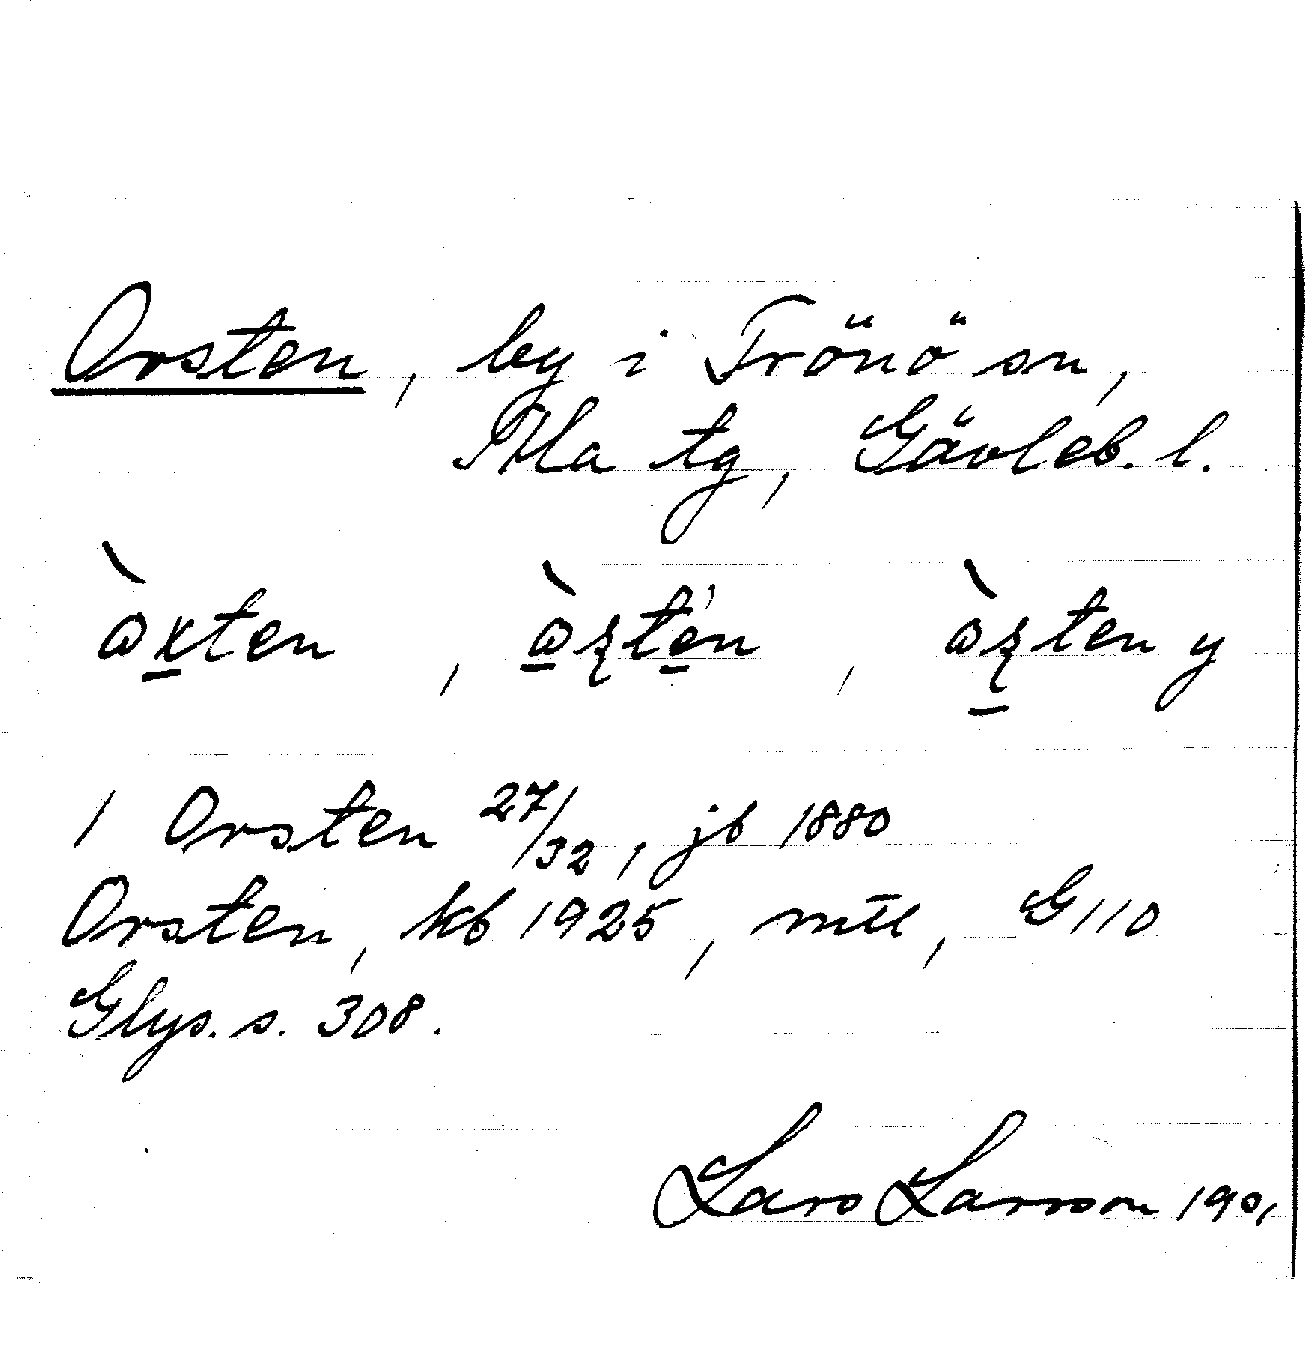 Orsten, by i Trönö sn,
Ala tg, Gävleb. l.
y
1 Orsten 27/32, jb 1880
Orsten, kb 1925, mtl, G110
Glys. s. 308.
Lars Larsson 1901